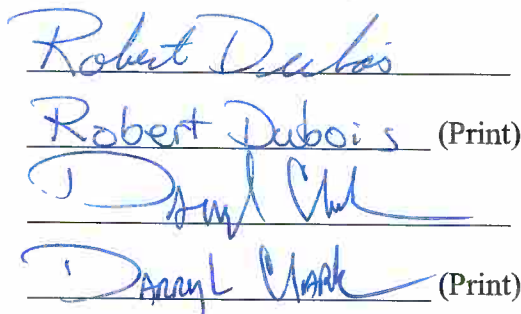 Robert Dubois
Robert Dubois (Print)
Darryl Clark
Darryl Clark (Print)